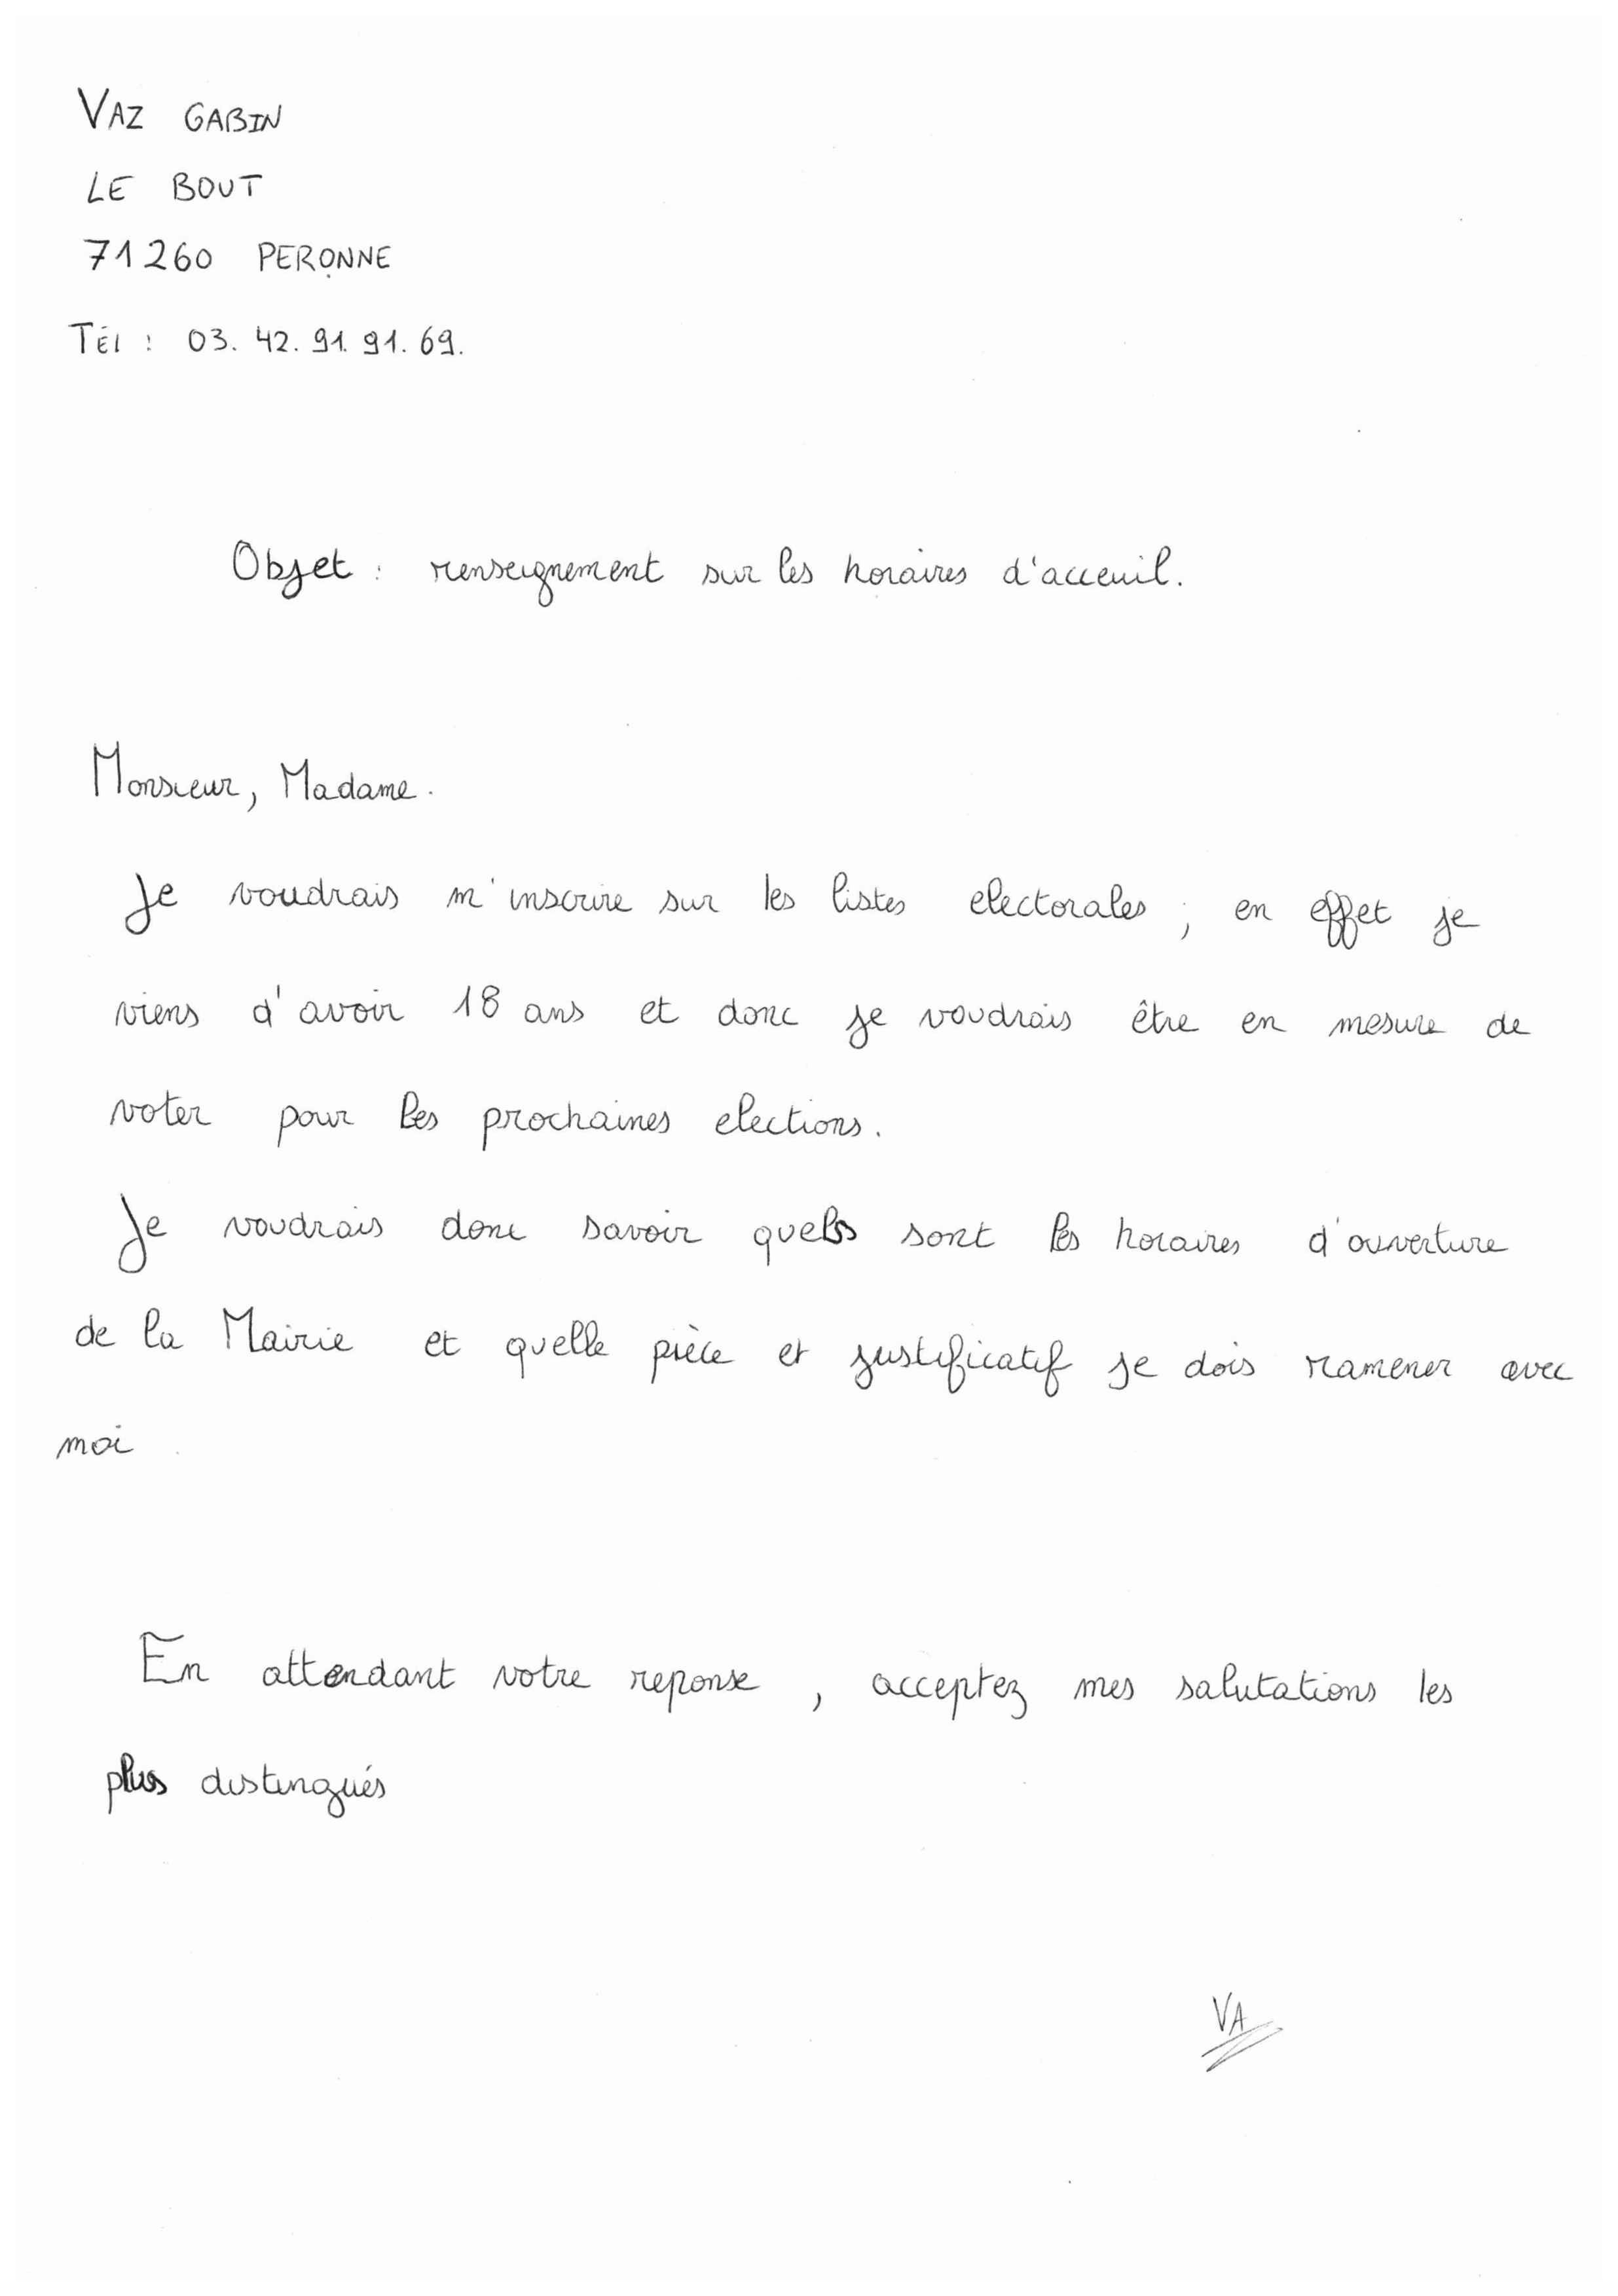 VAZ GABIN
LE BOUT
71260 PERONNE
Tél : 03. 42. 91. 91. 69.
Objet : renseignement sur les horaires d'acceuil.
Monsieur, Madame.
Je voudrais m'inscrire sur les listes electorales ; en effet je
viens d'avoir 18 ans et donc je voudrais être en mesure de
voter pour les prochaines elections.
Je voudrais donc savoir quels sont les horaires d'ouverture
de la Mairie et quelle pièce et justificatif je dois ramener avec
moi.
En attendant votre reponse, acceptez mes salutations les
plus distingués
VA